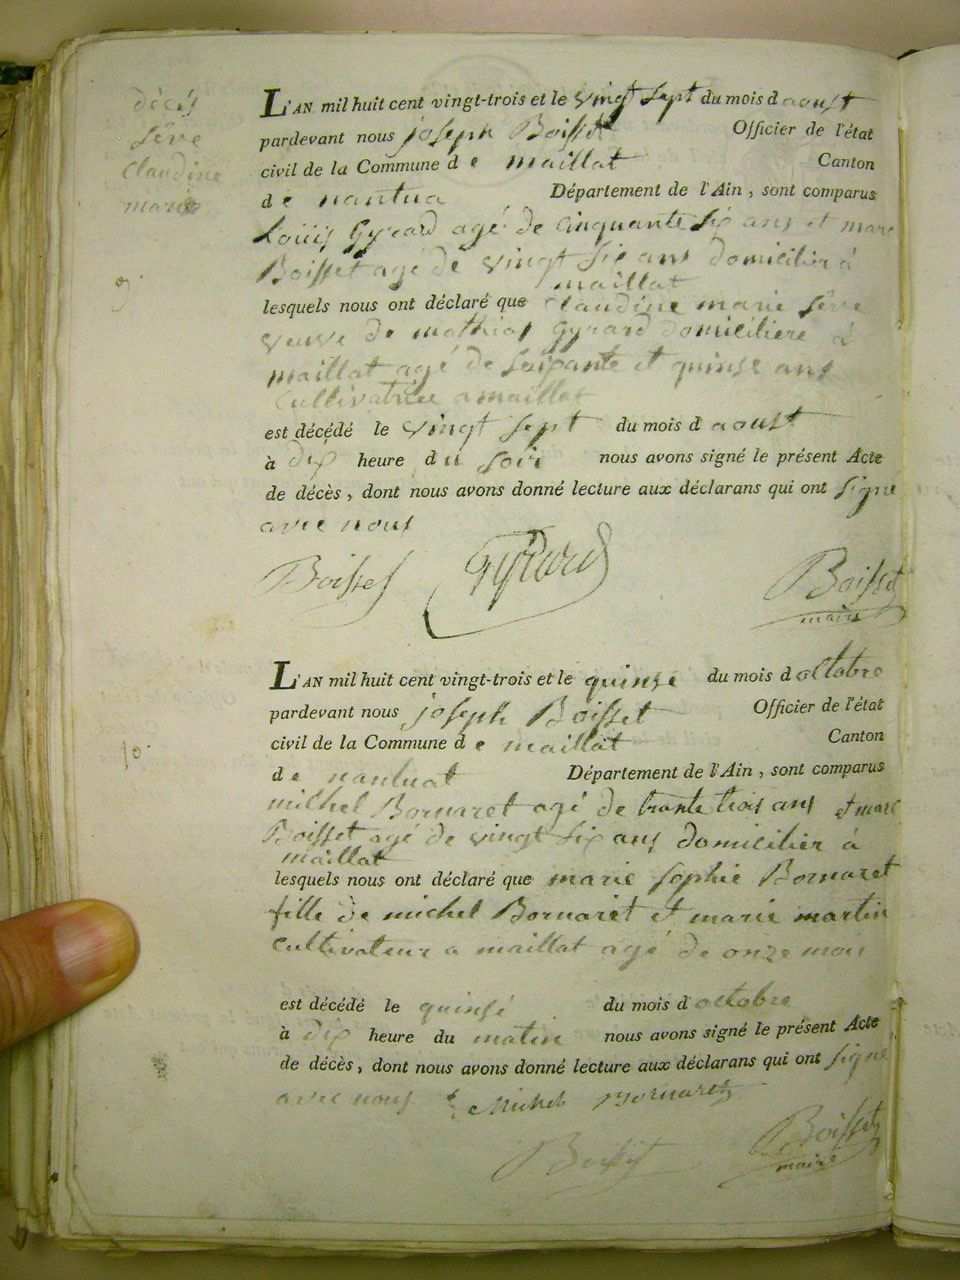 décès
Sève
Claudine
marie
L'AN mil huit cent vingt-trois et le vingt sept du mois d aoust
pardevant nous joseph Boisset Officier de l'état
civil de la Commune d e maillat Canton
d e nantua Département de l'Ain, sont comparus
Louis Gyrard agé de Cinquante Six ans et marc
Boisset agé de vingt Six ans domicilier à
maillat
lesquels nous ont déclaré que Claudine marie Sève
veuve de mathias Gyrard domiciliere à
maillat agé de Soixante et quinse ans
Cultivatrice a maillat
est décédé le vingt Sept du mois d aoust
à dix heure du Soir nous avons signé le présent Acte
de décès, dont nous avons donné lecture aux déclarans qui ont Signe
avec nous
Boisset Gyrard Boisset
maire
L'AN mil huit cent vingt-trois et le quinse du mois d octobre
pardevant nous joseph Boisset Officier de l'état
10.
civil de la Commune d e maillat Canton
d e nantuat Département de l'Ain, sont comparus
michel Bornaret agé de trante trois ans et marc
Boisset agé de vingt Six ans domicilier à
maillat
lesquels nous ont déclaré que marie Sophie Bornaret
fille de michel Bornaret et marie martin
Cultivateur a maillat agé de onze mois
est décédé le quinse du mois d octobre
à dix heure du matin nous avons signé le présent Acte
de décès, dont nous avons donné lecture aux déclarans qui ont Signe
avec nous Michel Bornaret
Boisset Boisset
maire